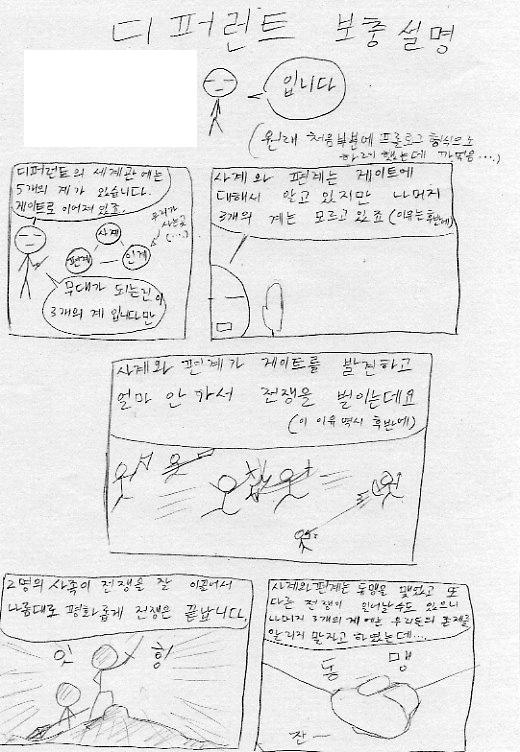 디퍼런트 보충설명
입니다
(원래 처음부분에 프롤로그 형식으로
하려 했는데 까먹음....)
디퍼런트의 세계관에는
5개의 계가 있습니다.
게이트로 이어져 있죠.
우리가
사는곳
(...)
사계
편계
인계
무대가 되는건 이
3개의 계 입니다만
사계와 편계는 게이트에
대해서 알고 있지만 나머지
3개의 계는 모르고 있죠 (이유는 후반에)
사계와 편계가 게이트를 발견하고
얼마 안 가서 전쟁을 벌이는데요
(이 이유 역시 후반에)
2명의 사족이 전쟁을 잘 이끌어서
나름대로 평화롭게 전쟁은 끝납니다.
사계와 편계는 동맹을 맺었고 또
다른 전쟁이 일어날수도 있으니
나머지 3개의 계에는 우리들의 존재를
알리지 말자고 하였는데...
동 맹
잔ㅡ